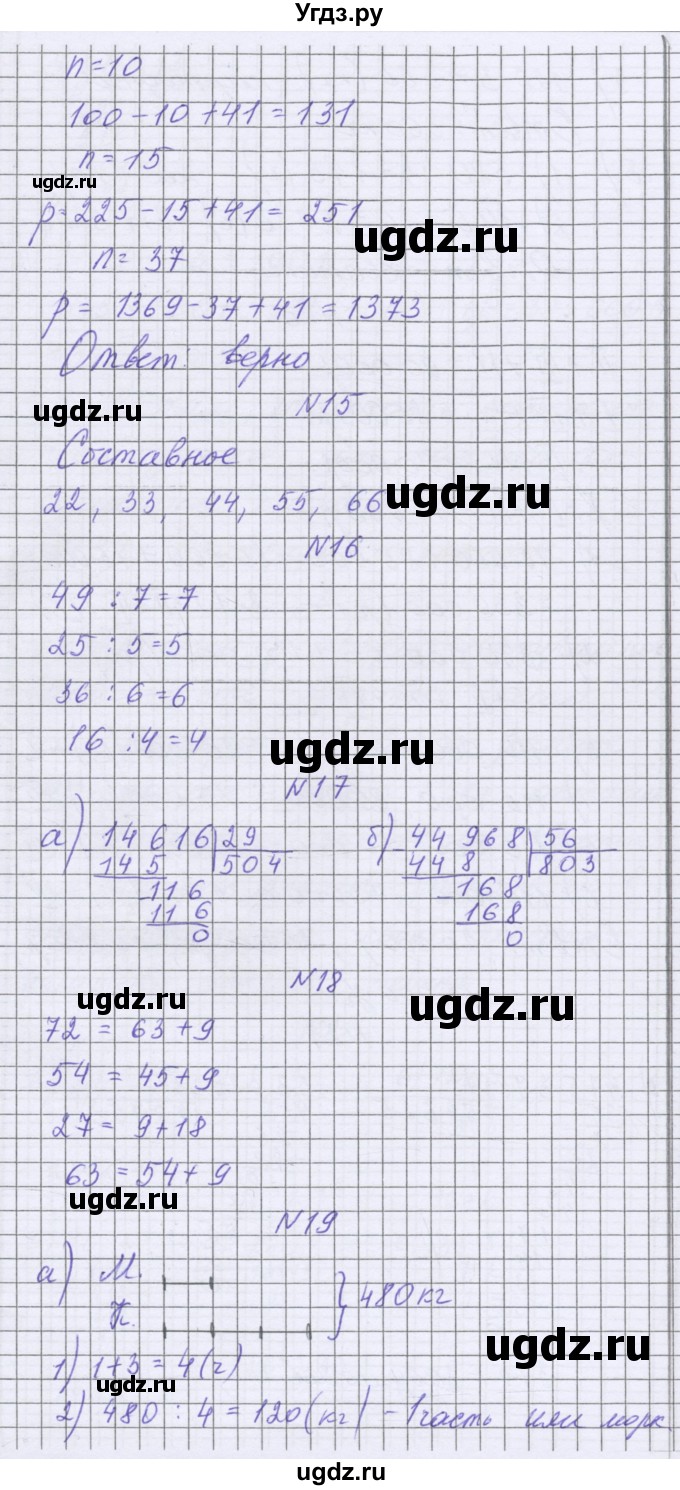 Угдз.ру
n=10
100-10+41=131
n=15
ugdz.ru
p=225-15+41= 251
ugdz.ru
n= 37
p= 1369-37+41=1373
Ответ: верно
ugdz.ru
N15
Составное
22, 33, 44, 55, 66
ugdz.ru
N16
49 : 7=7
25 : 5=5
36 : 6=6
16 : 4=4
ugdz.ru
N17
а) 14616|29 б) 44968|56
145 504 448 803
116 168
116 168
0 0
N18
ugdz.ru
ugdz.ru
72 = 63+9
54 = 45+9
27= 9+18
63=54+9
ugdz.ru
N19
а) М.
480кг
К.
ugdz.ru
1) 1+3=4(ч)
ugdz.ru
2) 480 : 4=120(кг) - 1часть или морк.
ugdz.ru